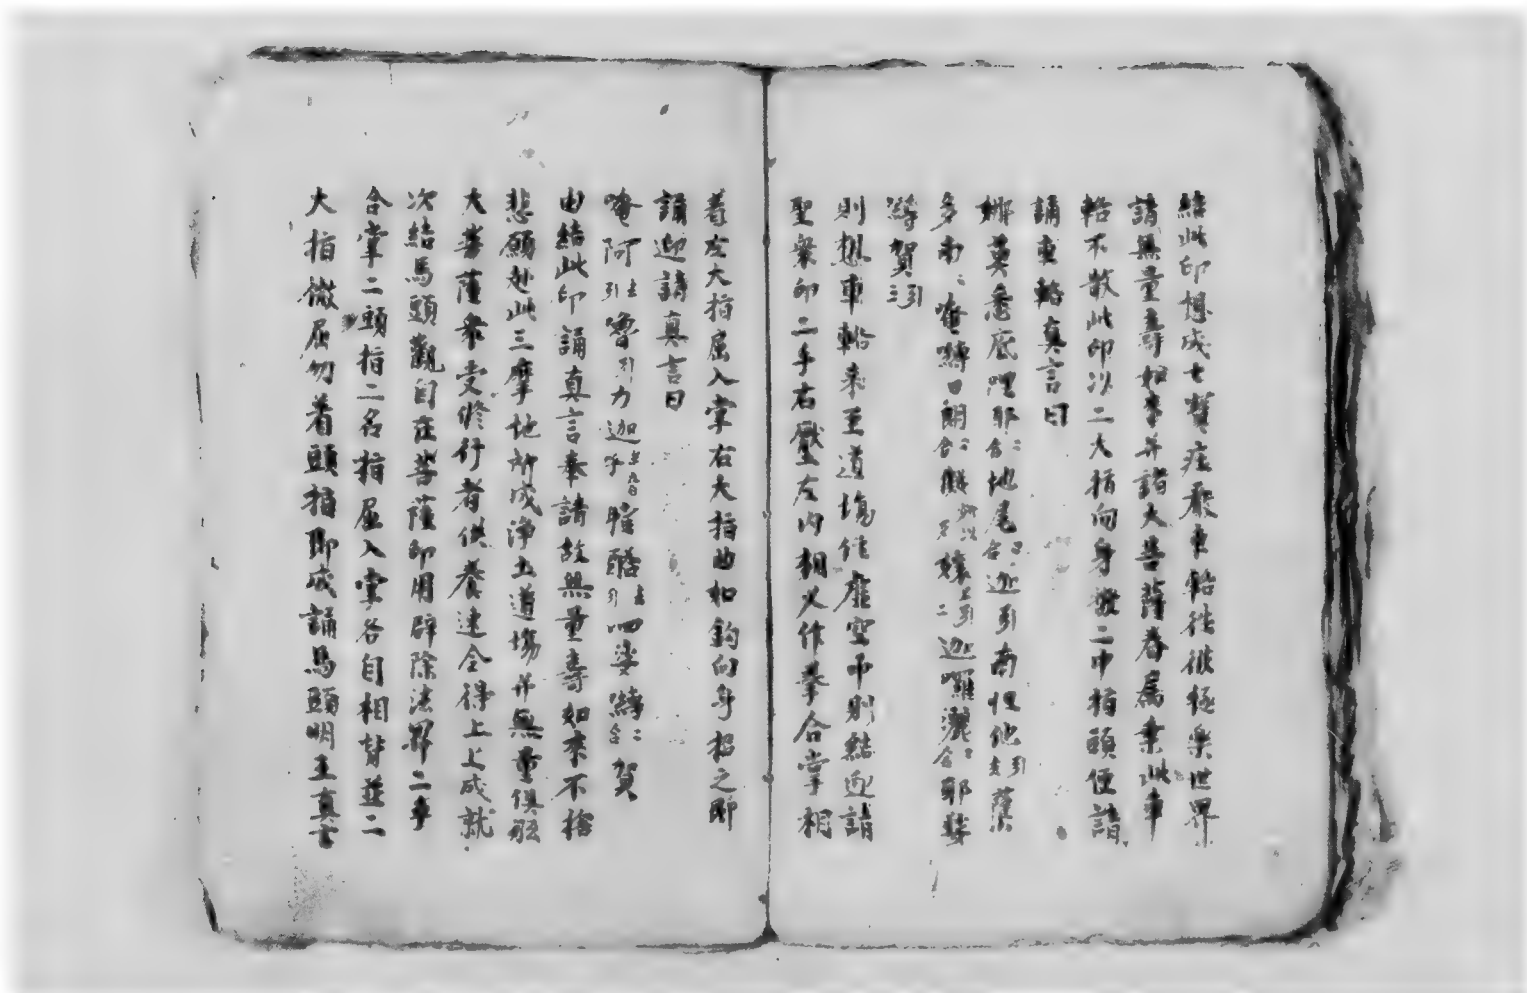 結此印想成七寶莊嚴車輅往彼極樂世界
請無量壽如來并諸大菩薩眷屬乘此車
輅不散此印以二大指向身撥二中指頭便誦
誦車輅真言曰
娜莫悉底哩耶二合地尾二合迦引南怛他引去蘖
多南二唵嚩日朗二合儗妍以反孃上引二迦囉灑二合耶娑
嚩賀引三
則想車輅來至道場住虛空中則結迎請
聖衆印二手右壓左內相叉作拳合掌相
着左大指屈入掌右大指曲如鈎向身招之即
誦迎請真言曰
唵阿去引嚕引力迦曳醯引四娑嚩二合賀
由結此印誦真言奉請故無量壽如來不捨
悲願赴此三摩地所成淨土道場并無量俱胝
大菩薩衆受修行者供養速令得上上成就
次結馬頭觀自在菩薩印用辟除法界二手
合掌二頭指二名指屈入掌各自相背並二
大指微屈勿着頭指即成誦馬頭明王真言